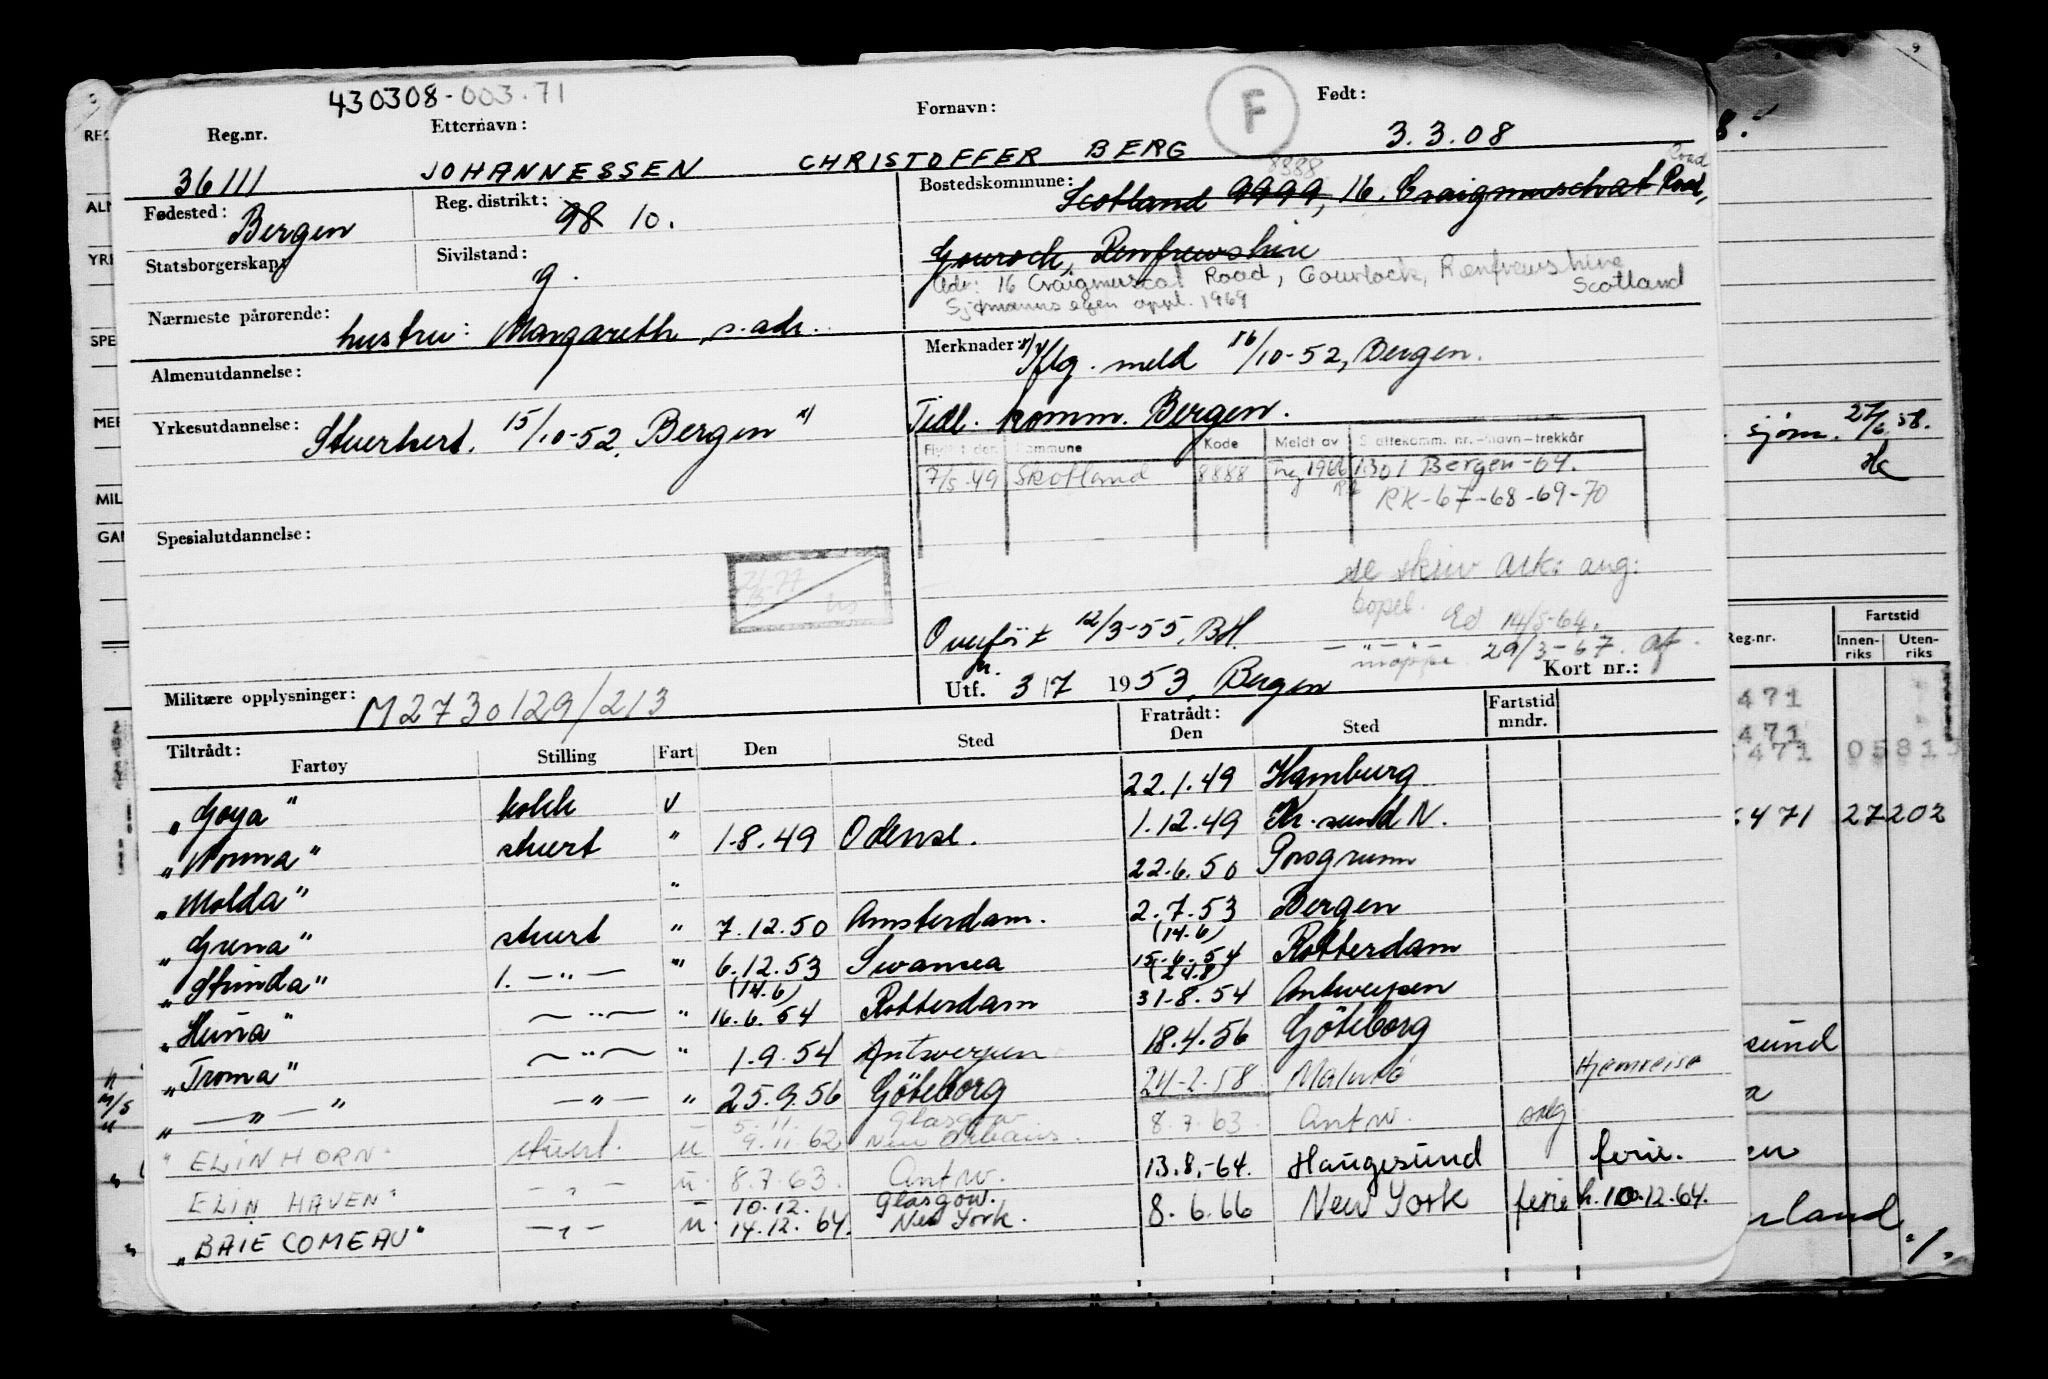 430308-003.71
Reg.nr. Etternavn: Fornavn: F Født:
36111 JOHANNESSEN CHRISTOFFER BERG 3.3.08
Fødested: Bergen Reg. distrikt: 98 10. Bostedskommune: 8888 Scotland 9999, 16. Craigmuschat Road,
Road
Statsborgerskap: Sivilstand: g. Gourock, Renfrewshire
Adr: 16 Craigmuscat Road, Gourlock, Renfrewshire
Scotland
Sjømanns egen oppl. 1969
Nærmeste pårørende: hustru: Margareth, s. adr.
Almenutdannelse:
Merknader: Iflg. meld 16/10-52, Bergen.
Yrkesutdannelse: Stuerhert. 15/10-52, Bergen x)
Tidl. komm. Bergen.
Flyttet den Kommune Kode Meldt av Skattekomm. nr.-navn-trekkår
7/5-49 Skotland 8888 1966 1301 Bergen-64.
RK-67-68-69-70
Spesialutdannelse:
se skriv Ark: ang:
bopel. Ed 14/5-64.
Overført 12/3-55, BH.
— " — " — mappe 29/3-67. af
Utf. 3/7 1953, Bergen Kort nr.:
Militære opplysninger: M2730129/213
Tiltrådt: Fratrådt: Fartstid
Fartøy Stilling Fart Den Sted Den Sted mndr.
"Goya" kokk v 22.1.49 Hamburg
"Norma" stuert " 1.8.49 Odense. 1.12.49 Kr.sund N.
"Molda" " 22.6.50 Porsgrunn
"Grena" stuert " 7.12.50 Amsterdam. 2.7.53 Bergen
(14.6)
"Strinda" 1. — " — " 6.12.53 Swansea 15.6.54 Rotterdam
(14.6) (24.8)
"Huna" — " — " 16.6.54 Rotterdam 31.8.54 Antwerpen
"Troma" — " — " 1.9.54 Antwerpen 18.4.56 Göteborg
— " — " — " — " 25.9.56 Göteborg 24.2.58 Malmö Hjemreise
5.11. Glasgow
"ELIN HORN" stuert. u 9.11.62 New Orleans. 8.7.63. Antw.
"ELIN HAVEN" — " — u. 8.7.63. Antw. 13.8.-64. Haugesund ferie.
10.12. Glasgow.
"BAIE COMEAU" — " — u. 14.12.64. New York. 8.6.66 New York ferie h. 10.12.64.
REG
ALM
YRK
SPE
MER
MIL
GAN
8.
sjøm. 27/6.58.
Fartstid
Reg.nr. Innen-riks Uten-riks
471
471
471 0581
471 27 202
sund
a
en
rland